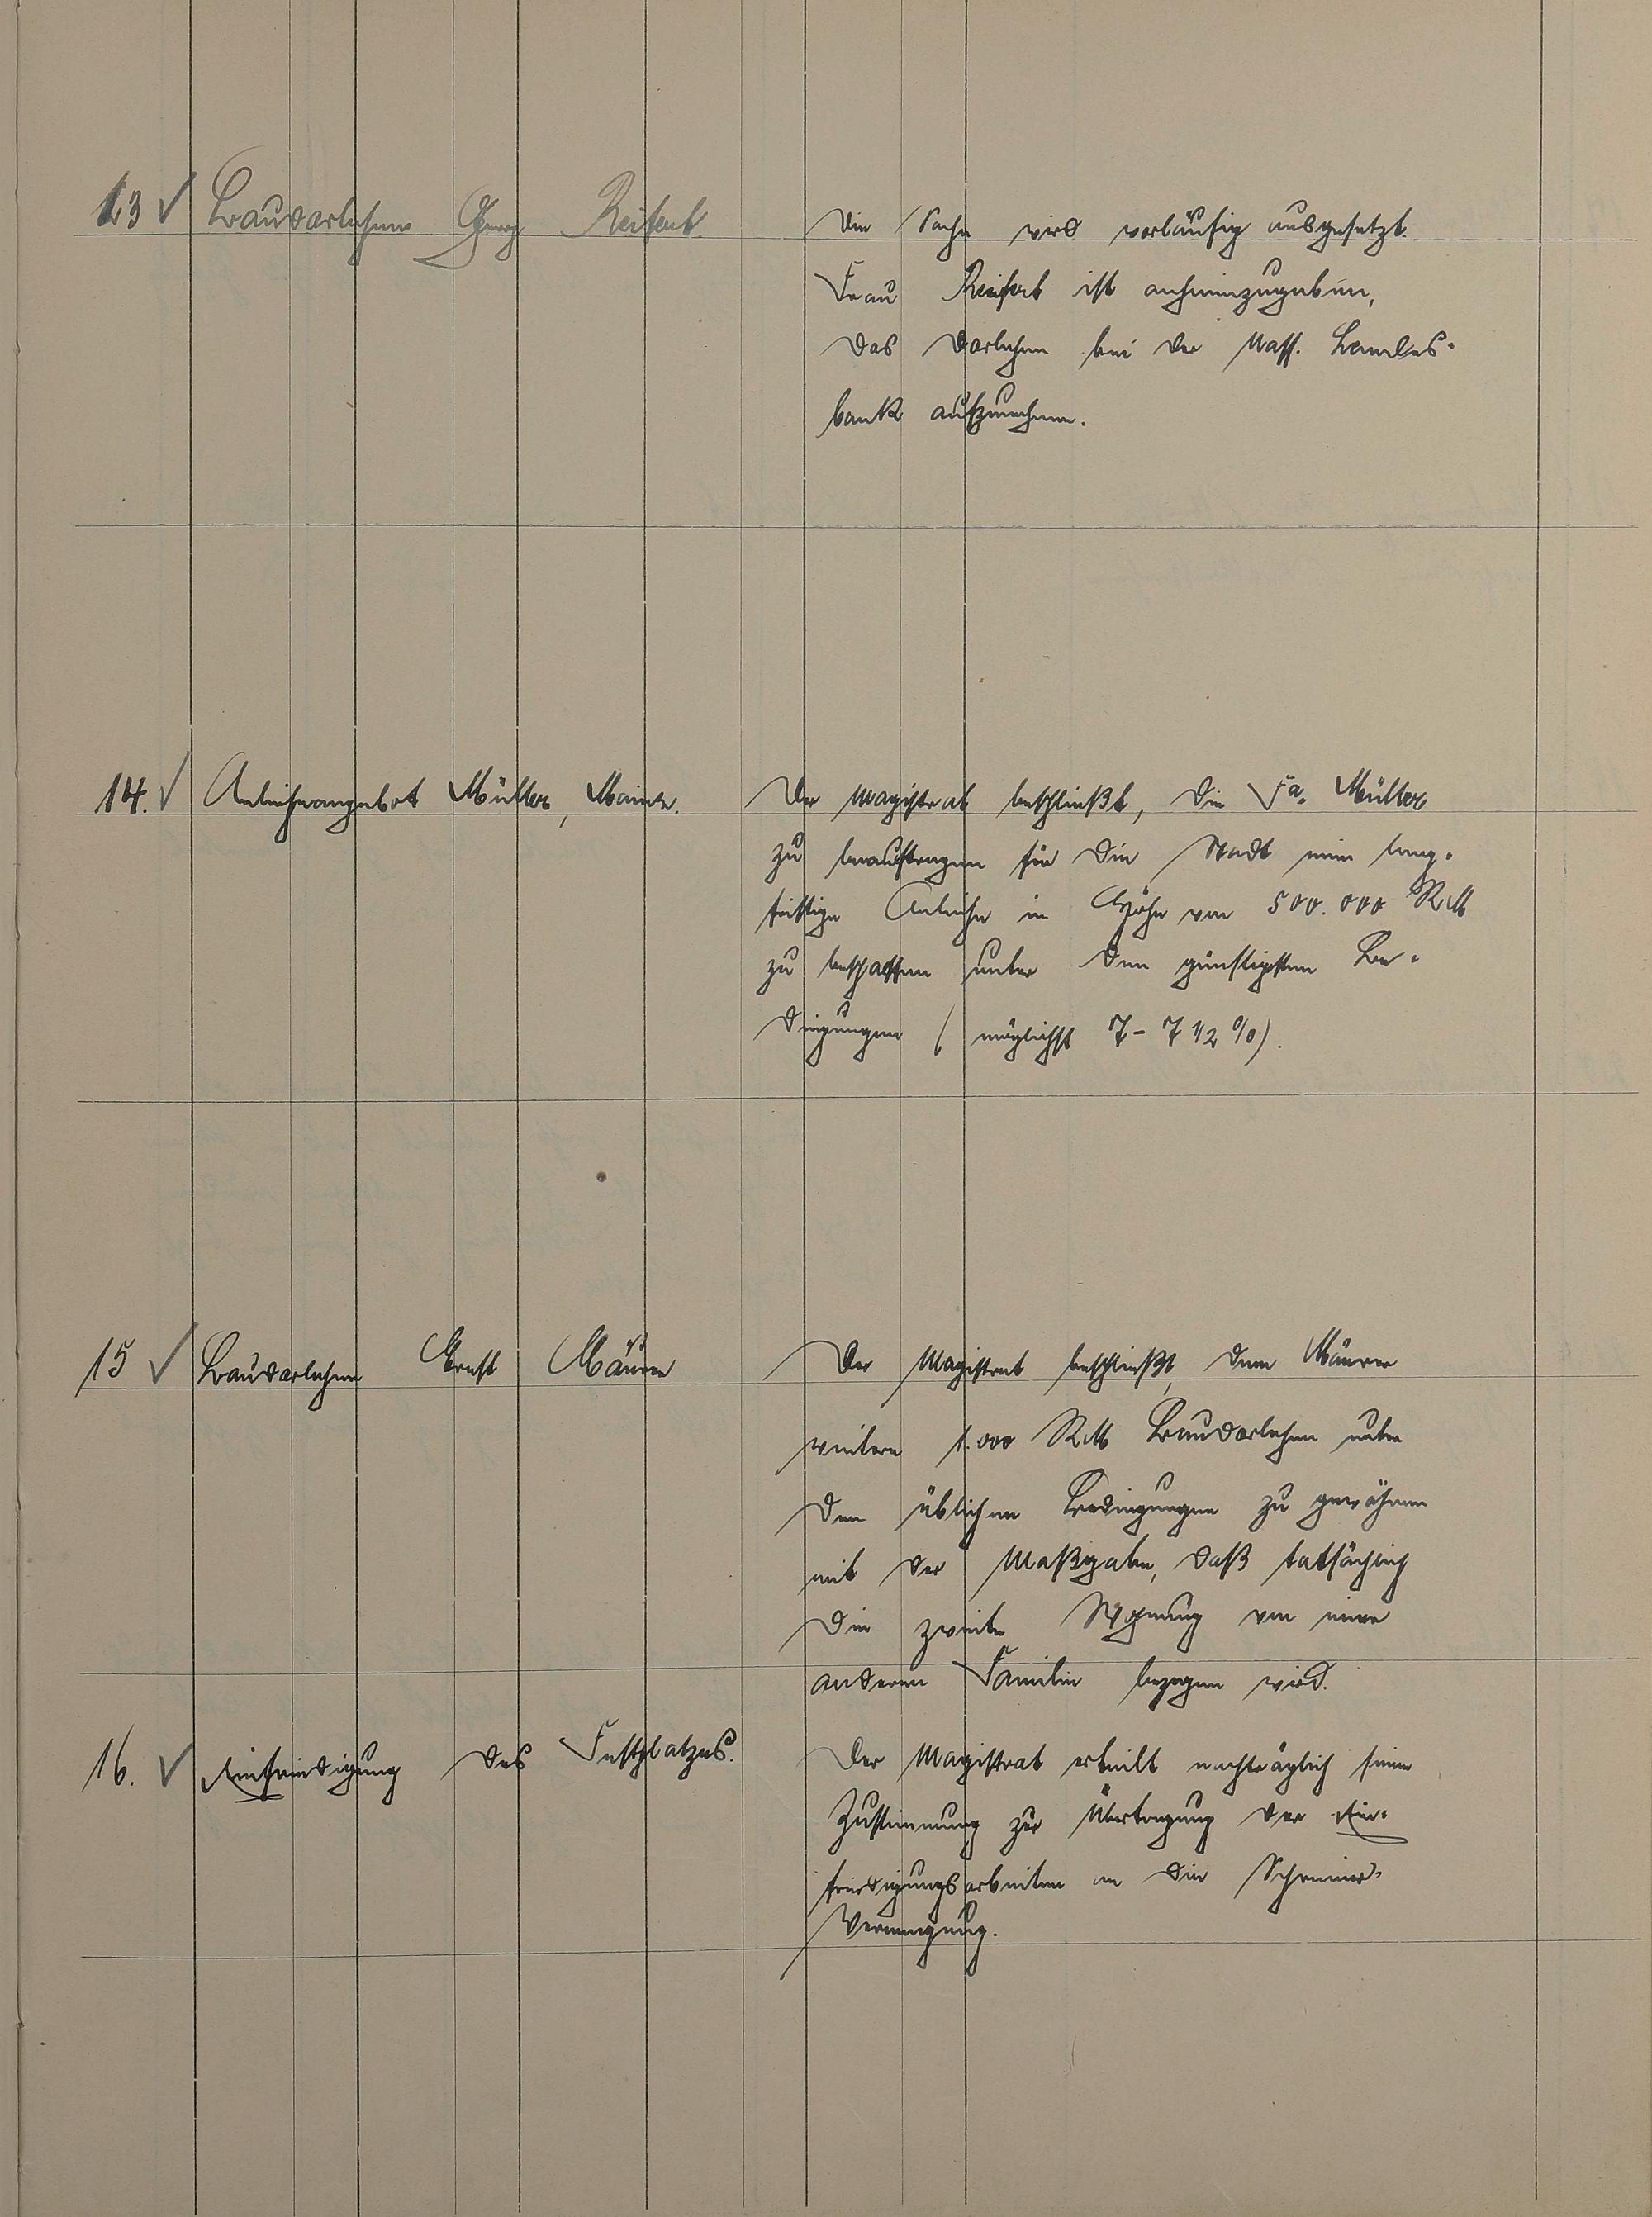 13 ✓ Baudarlehen Georg Reifert.
Die Sache wird vorläufig ausgesetzt.
Frau Reifert ist anheimzugeben,
das Darlehen bei der Nass. Landes-
bank aufzunehmen.
14. ✓ Anleiheangebot Müller, Mainz.
Der Magistrat beschließt, die Fa. Müller
zu beauftragen für die Stadt eine lang-
fristige Anleihe in Höhe von 500.000 RM
zu beschaffen unter den günstigsten Be-
dingungen (möglichst 7 - 7 1/2 %).
15 ✓ Baudarlehen Ernst Mäurer
Der Magistrat beschließt, dem Mäurer
weitere 1.000 RM Baudarlehen unter
den üblichen Bedingungen zu gewähren
mit der Maßgabe, daß tatsächlich
die zweite Wohnung von einer
anderen Familie bezogen wird.
16. ✓ Einfriedigung des Festplatzes.
Der Magistrat erteilt nachträglich seine
Zustimmung zur Übertragung der Ein-
friedigungsarbeiten an die Schreiner-
Vereinigung.